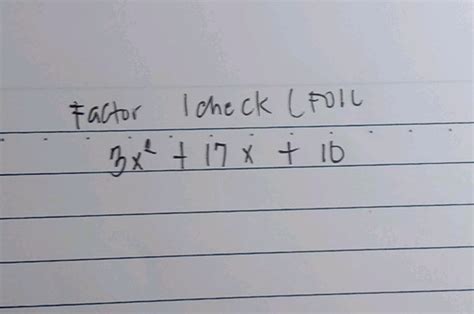 Factor / check (FOIL
3x² + 17x + 10